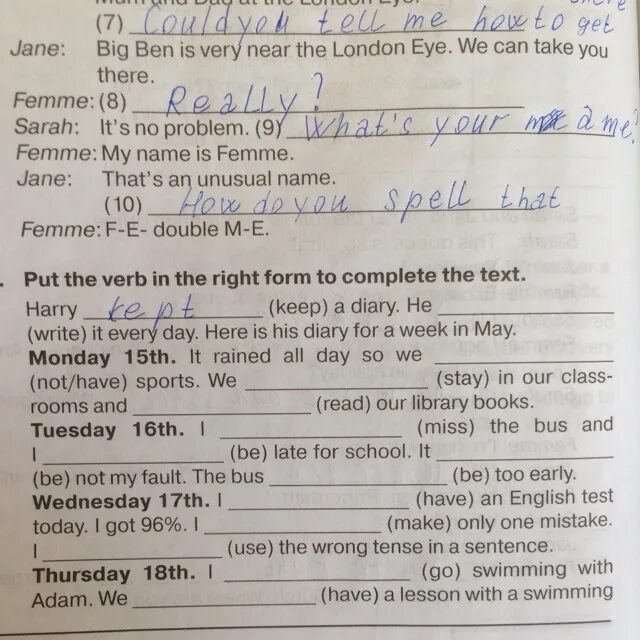 (7) Could you tell me how to get
Jane: Big Ben is very near the London Eye. We can take you
there.
Femme: (8) Really?
Sarah: It's no problem. (9) What's your name?
Femme: My name is Femme.
Jane: That's an unusual name.
(10) How do you spell that
Femme: F-E- double M-E.
Put the verb in the right form to complete the text.
Harry kept (keep) a diary. He
(write) it every day. Here is his diary for a week in May.
Monday 15th. It rained all day so we
(not/have) sports. We (stay) in our class-
rooms and (read) our library books.
Tuesday 16th. I (miss) the bus and
I (be) late for school. It
(be) not my fault. The bus (be) too early.
Wednesday 17th. I (have) an English test
today. I got 96%. I (make) only one mistake.
I (use) the wrong tense in a sentence.
Thursday 18th. I (go) swimming with
Adam. We (have) a lesson with a swimming